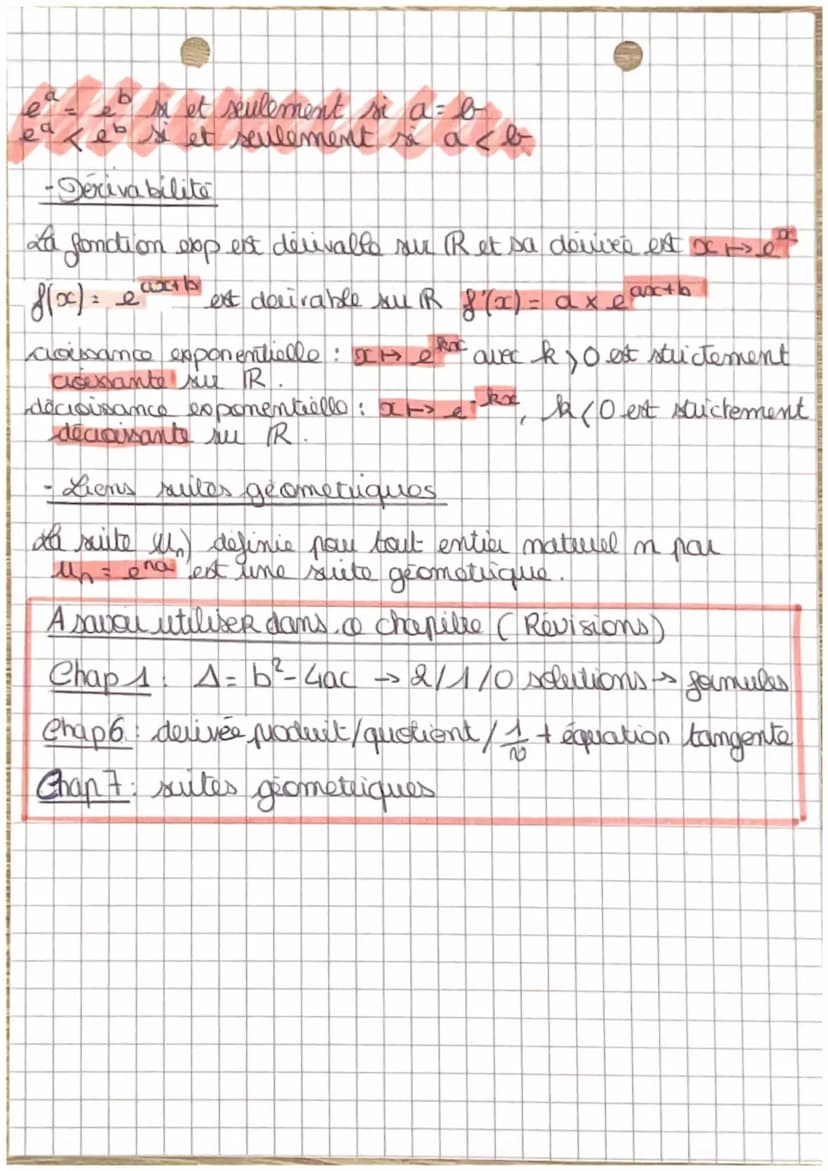 e^a = e^b si et seulement si a = b
e^a < e^b si et seulement si a < b
- Dérivabilité
La fonction exp est dérivable sur ℝ et sa dérivée est x ↦ e^x
f(x) = e^{ax+b} est derivable sur ℝ f'(x) = a × e^{ax+b}
croissance exponentielle : x ↦ e^{kx} avec k > 0 est strictement
croissante sur ℝ.
décroissance exponentielle : x ↦ e^{-kx}, k < 0 est strictement
décroissante sur ℝ.
- Liens suites géometriques
La suite (u_n) définie pour tout entier naturel n par
u_n = e^{na} est une suite géometrique.
A savoir utiliser dans ce chapitre (Révisions)
Chap 1 : Δ = b² - 4ac → 2/1/0 solutions → formules
Chap 6 : derivée produit/quotient/ 1/v + équation tangente
Chap 7 : suites géometriques